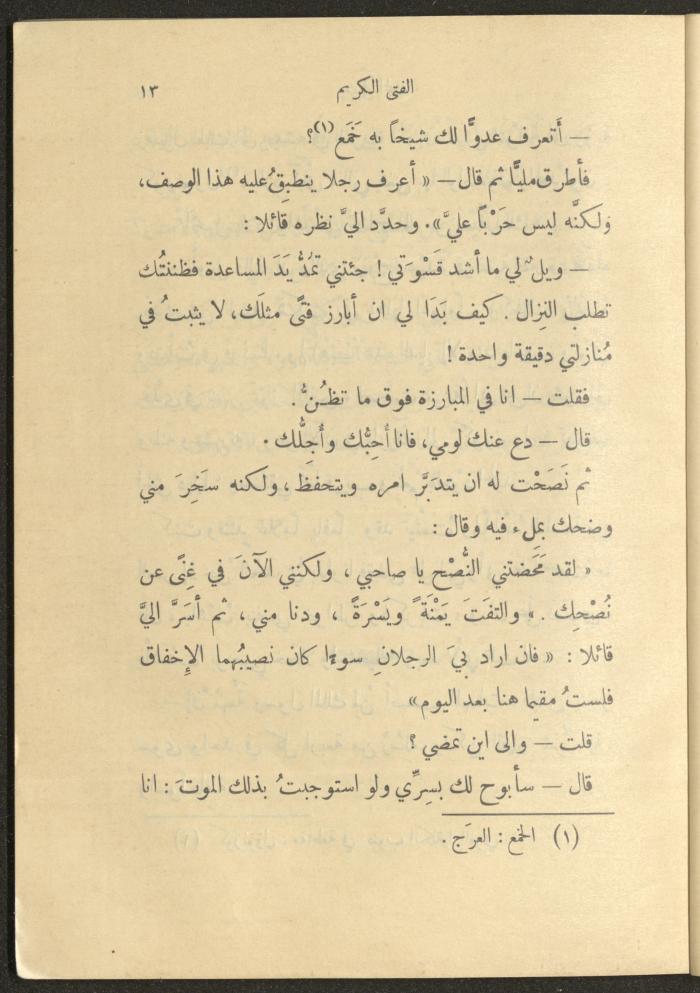 الفتى الكريم ١٣
— أَتعرف عدوًّا لك شيخاً به خَمَع (١)؟
فأطرق مليًّا ثم قال — « أعرف رجلا ينطبِقُ عليه هذا الوصف،
ولكنَّه ليس حَرْبًا عليَّ ». وحدَّد اليَّ نظره قائلا :
— ويلٌ لي ما أشد قَسْوَتي ! جئتني تمُدُّ يَدَ المساعدة فظننتُك
تطلب النِزال . كيف بَدَا لي ان أبارز فتًى مثلَك، لا يثبتُ في
مُنازلتي دقيقة واحدة !
فقلت — انا في المبارزة فوق ما تظُنُّ .
قال — دع عنك لومي، فانا أُحِبُّك وأُجِلُّك .
ثم نَصَحْت له ان يتدبَّر امره ويتحفظ ، ولكنه سَخِرَ مني
وضحك بملء فيه وقال :
« لقد مَحَضتني النُّصْح يا صاحبي ، ولكنني الآنَ في غِنًى عن
نُصْحِك . » والتفَتَ يَمْنَةً ويَسْرَةً ، ودنا مني ، ثم أسَرَّ اليَّ
قائلا : « فان اراد بيَ الرجلانِ سوءا كان نصيبُهما الإخفاق
فلستُ مقيما هنا بعد اليوم »
قلت — والى اين تمضي ؟
قال — سأبوح لك بسِرِّي ولو استوجبتُ بذلك الموتَ : انا
(١) الخمع : العرَج .